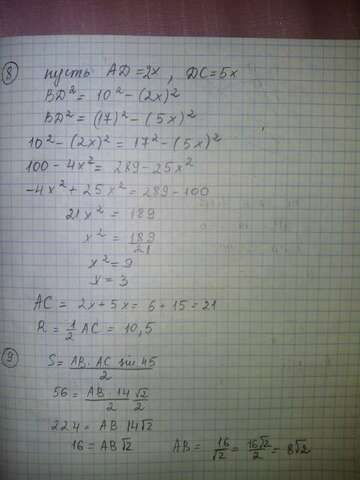 8 пусть AD = 2x, DC = 5x
BD² = 10² - (2x)²
BD² = (17)² - (5x)²
10² - (2x)² = 17² - (5x)²
100 - 4x² = 289 - 25x²
-4x² + 25x² = 289 - 100
21x² = 189
x² = 189/21
x² = 9
x = 3
AC = 2x + 5x = 6 + 15 = 21
R = 1/2 AC = 10,5
9 S = AB · AC sin 45/2
56 = AB 14 √2/2 2
224 = AB 14√2
16 = AB√2 AB = 16/√2 = 16√2/2 = 8√2